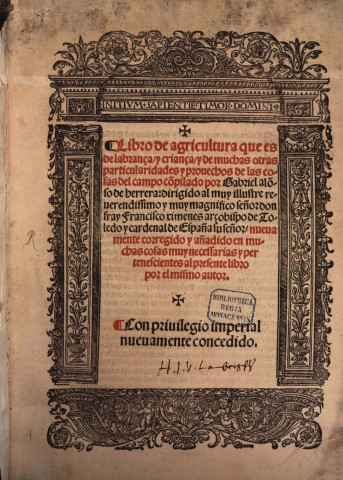 INITIVM·SAPIENTIE·TIMOR·DOMINI
Libro de agricultura que es
de labrança/y criança/y de muchas otras
particularidades y prouechos de las co
sas del campo cõpilado por Gabriel alõ
so de herrera: dirigido al muy illustre re
uerendissimo y muy magnifico señor don
fray Francisco ximenes arçobispo de To
ledo y cardenal de España su señor/ nueua
mente corregido y añadido en mu
chas cosas muy necessarias y per
tenescientes al presente libro
por el mismo autor.
BIBLIOTHECA
REGIA
MONACENSIS
Con priuilegio imperial
nueuamente concedido.